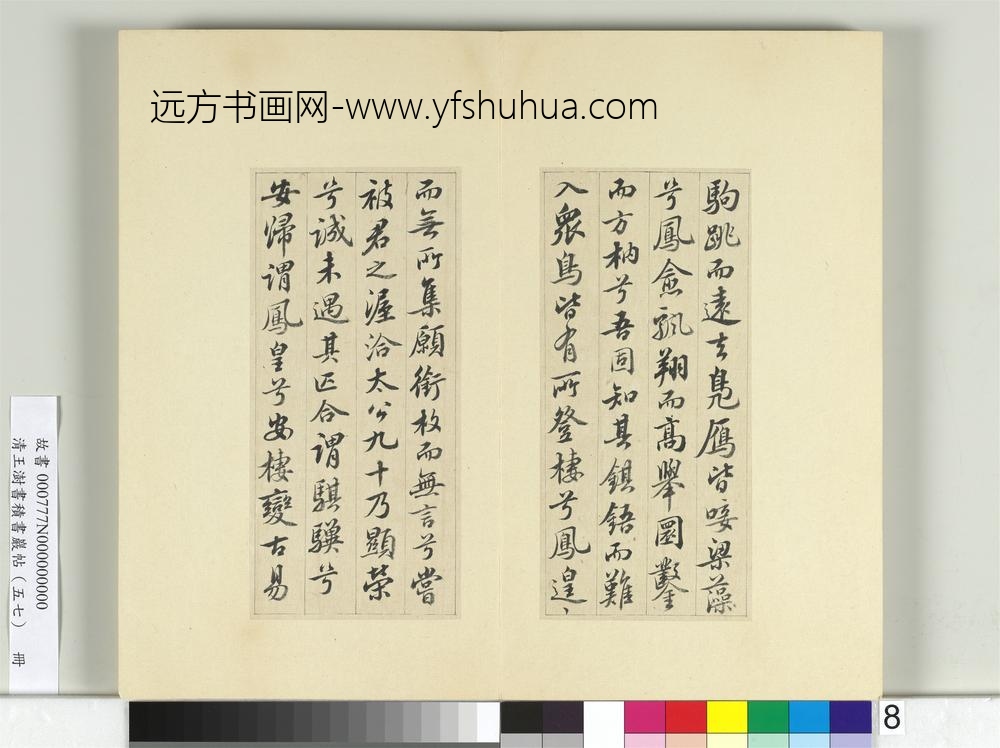 远方书画网-www.yfshuhua.com
駒跳而遠去鳧雁皆唼梁藻
兮鳳愈飄翔而高舉圜鑿
而方枘兮吾固知其鉏鋙而難
入衆鳥皆有所登棲兮鳳遑〻
而無所集願銜枚而無言兮嘗
被君之渥洽太公九十乃顯榮
兮誠未遇其匹合謂騏驥兮
安歸謂鳳皇兮安棲變古易
故書 000777N000000000
清王澍書積書巖帖（五七） 冊
8